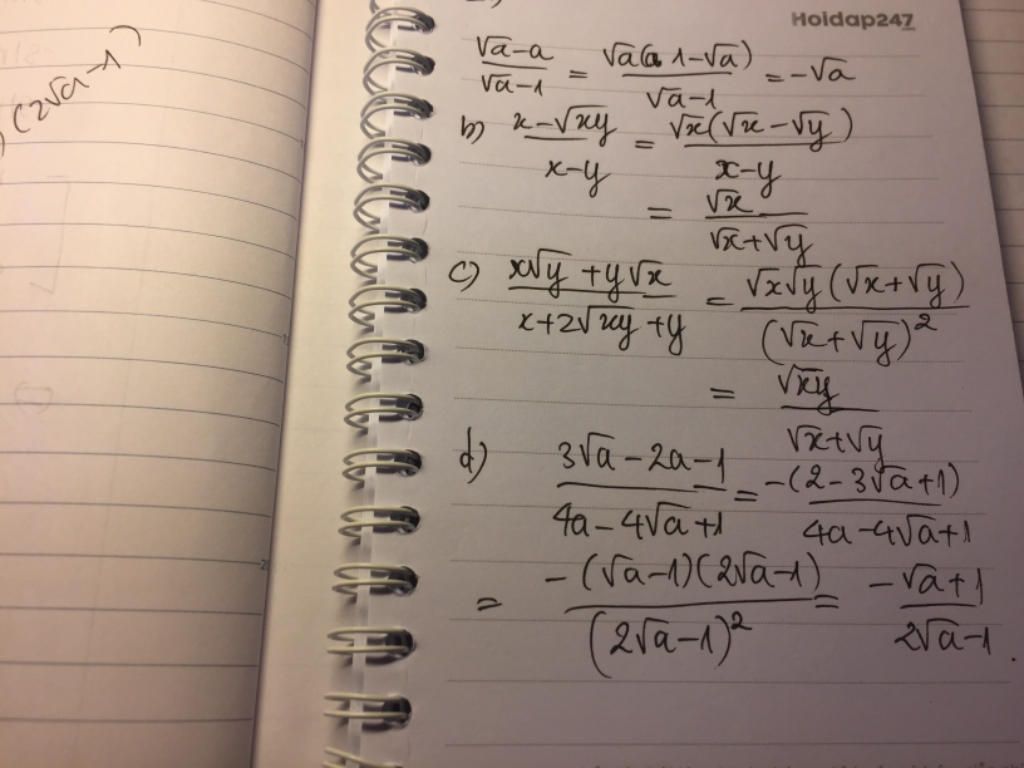 Hoidap247
(2√a-1)
(√a-a)/(√a-1) = √a(1-√a)/(√a-1) = -√a
b) (x-√xy)/(x-y) = √x(√x-√y)/(x-y)
= √x/(√x+√y)
c) (x√y+y√x)/(x+2√xy+y) = √x√y(√x+√y)/(√x+√y)²
= √xy/(√x+√y)
d) (3√a-2a-1)/(4a-4√a+1) = -(2-3√a+1)/(4a-4√a+1)
= -(√a-1)(2√a-1)/(2√a-1)² = (-√a+1)/(2√a-1).